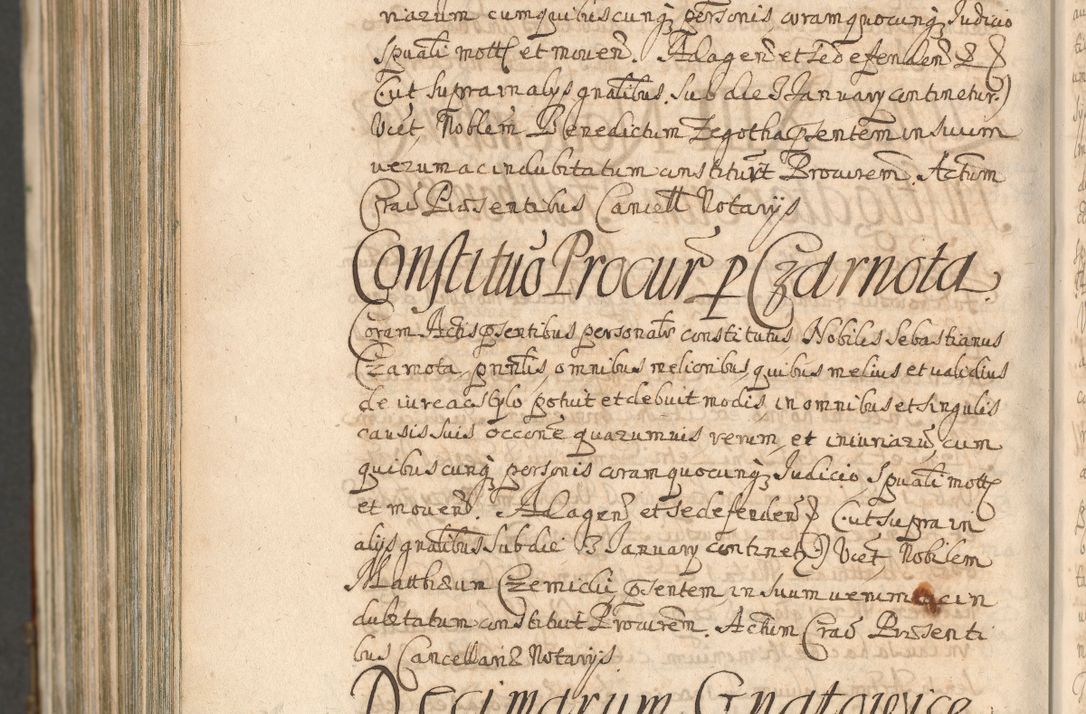 riarum cumquibuscunq personis, coram quocunq Judicio
Spuali mott et moven. Ad agen et se defenden & P
(ut supra in alijs gnalibus sub die 3 January continetur.)
Vicet Noblem Benedictum Zegotha psentem in suum
verum ac indubitatum constituit Procurem. Actum
Crac Presentibus Cancell Notarijs
Constituo Procur p Czarnota.
Coram Actis psentibus personalr constitutus Nobilis Sebastianus
Czarnota, pnntis, omnibus melioribus, quibus melius et validius
de iure ac stylo potuit et debuit modis, in omnibus et singulis
causis suis occone quarumvis rerum, et iniuriaru, cum
quibuscunq personis coram quocunq Judicio, Spuali mott
et moven. Ad agen et se defenden P (ut supra in
alijs gnalibus sub die 3 January continet.) Vicet Nobilem
Matthaeum Czernicki psentem, in suum verum ac in
dubitatum constituit Procurem. Actum Crac Praesenti
bus Cancellariae Notarijs.
Decimarum Gnatowice